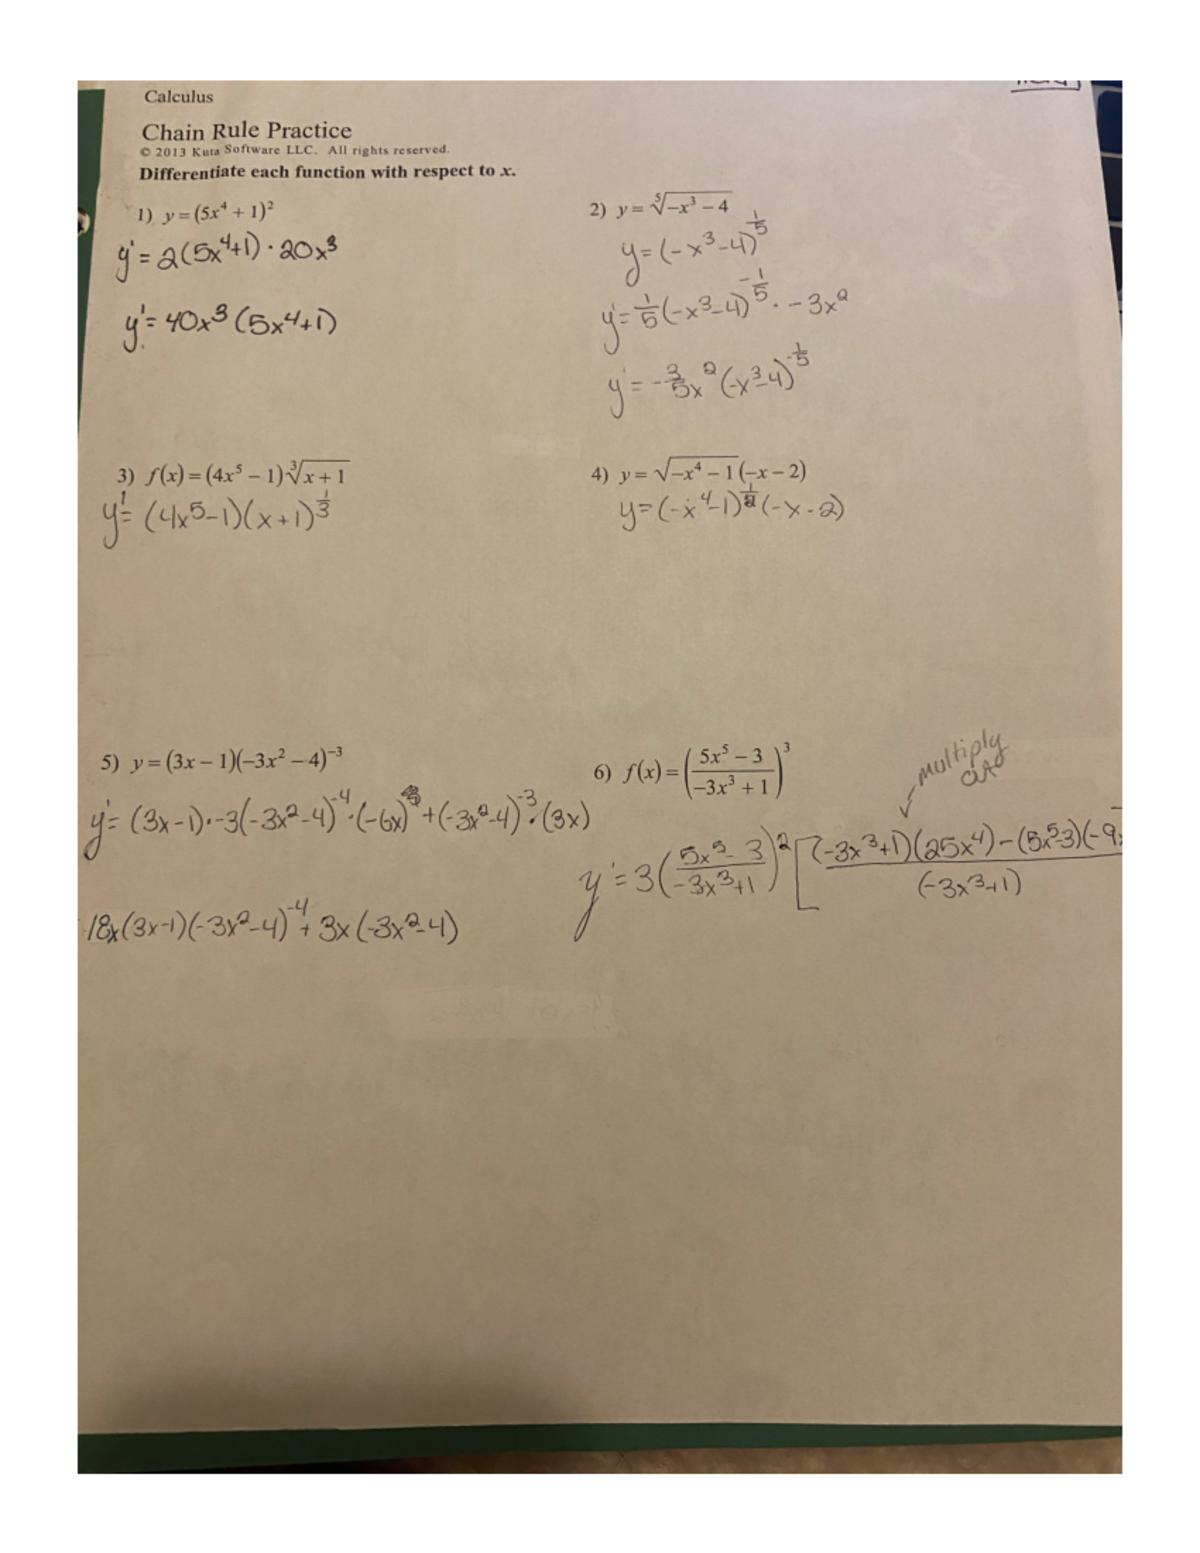 Calculus
Chain Rule Practice
© 2013 Kuta Software LLC. All rights reserved.
Differentiate each function with respect to x.
1) y = (5x⁴ + 1)²
y' = 2(5x⁴+1) · 20x³
y' = 40x³(5x⁴+1)
2) y = ⁵√(-x³ - 4)
y = (-x³-4)^(1/5)
y' = 1/5(-x³-4)^(-1/5) · -3x²
y' = -3/5x²(-x³-4)^(-1/5)
3) f(x) = (4x⁵ - 1)∛(x + 1)
y' = (4x⁵-1)(x+1)^(1/3)
4) y = √(-x⁴ - 1)(-x - 2)
y = (-x⁴-1)^(1/2)(-x-2)
5) y = (3x - 1)(-3x² - 4)⁻³
y' = (3x-1)·-3(-3x²-4)⁻⁴·(-6x) + (-3x²-4)⁻³·(3x)
18x(3x-1)(-3x²-4)⁻⁴ + 3x(-3x²-4)
6) f(x) = ((5x⁵ - 3)/(-3x³ + 1))³
multiply out
y' = 3((5x⁵-3)/(-3x³+1))² [((-3x³+1)(25x⁴)-(5x⁵-3)(-9x)/(-3x³+1)